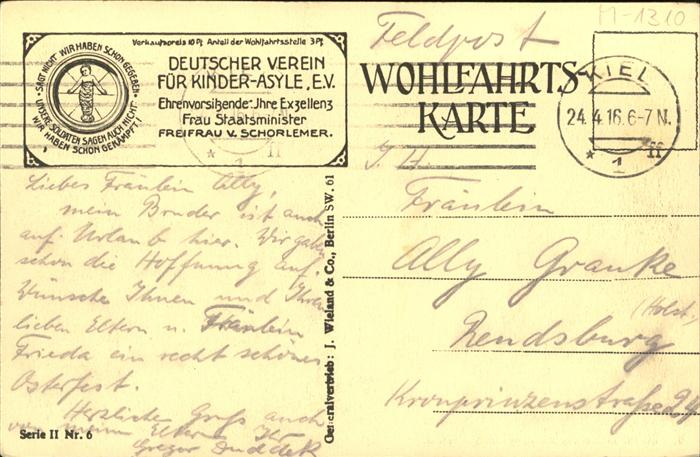 Feldpost
M-1310
Verkaufspreis 10 Pf. Anteil der Wohlfahrtsstelle 3 Pf.
SAGT NICHT WIR HABEN SCHON GEGEBEN
UNSERE SOLDATEN SAGEN AUCH NICHT
WIR HABEN SCHON GEKÄMPFT!
DEUTSCHER VEREIN
FÜR KINDER-ASYLE, E.V.
Ehrenvorsitzende: Ihre Exzellenz
Frau Staatsminister
FREIFRAU V. SCHORLEMER.
WOHLFAHRTS-
KARTE
KIEL
24.4.16.6-7 N.
* 1 ff
Liebes Fräulein Ally,
mein Bruder ist auch
auf Urlaub hier. Wir gaben
schon die Hoffnung auf.
Wünsche Ihnen und Ihren
lieben Eltern u. Fräulein
Frieda ein recht schönes
Osterfest.
Herzliche Grüße auch
von meinen Eltern Ihr
Gregor
Serie II Nr. 6
Generalvertrieb: J. Wieland & Co., Berlin SW. 61
Fräulein
Ally Granke
Rendsburg
(Holst.)
Kronprinzenstraße